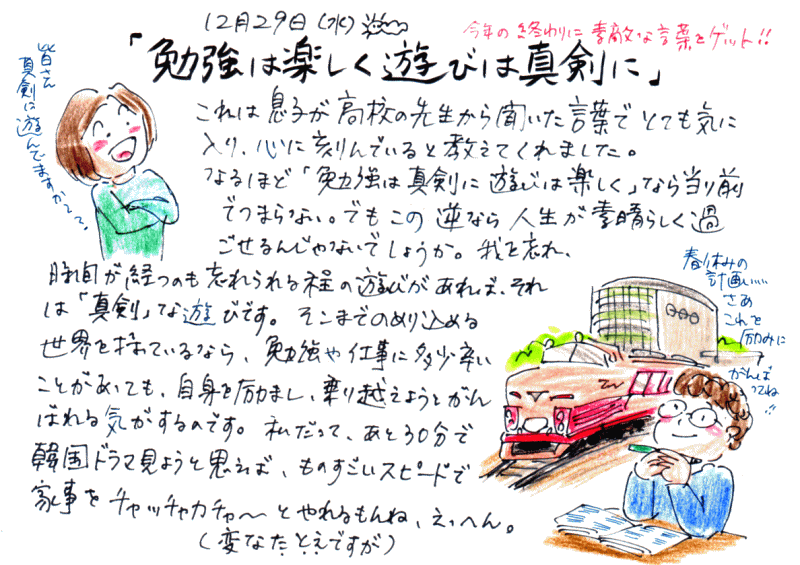 12月29日(水)
今年の終わりに素敵な言葉をゲット!!
「勉強は楽しく遊びは真剣に」
皆さん
真剣に遊んでますかぁ〜?
これは息子が高校の先生から聞いた言葉でとても気に
入り、心に刻んでいると教えてくれました。
なるほど「勉強は真剣に遊びは楽しく」なら当り前
でつまらない。でもこの逆なら人生が素晴らしく過
ごせるんじゃないでしょうか。我を忘れ、
時間が経つのも忘れられる程の遊びがあれば、それ
は「真剣」な遊びです。そこまでのめり込める
世界を持っているなら、勉強や仕事に多少辛い
ことがあっても、自身を励まし、乗り越えようとがん
ばれる気がするのです。私だって、あと30分で
韓国ドラマ見ようと思えば、ものすごいスピードで
家事をチャッチャカチャ〜とやれるもんね、えっへん。
(変なたとえですが)
春休みの
計画……
さあ
これを
励みに
がんば
ってね!!